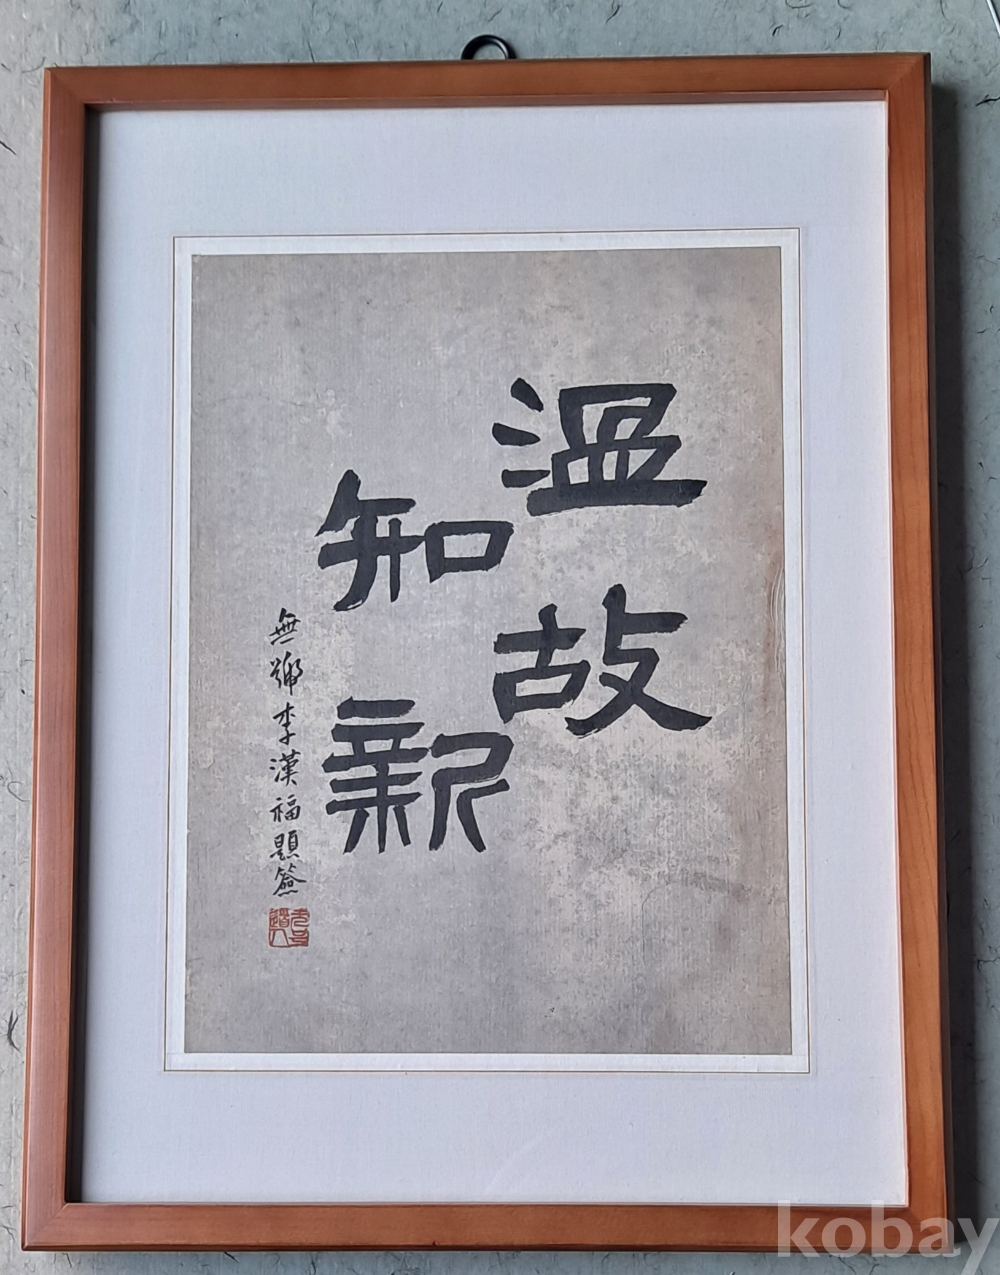 溫故
知新
無號李漢福題簽
kobay